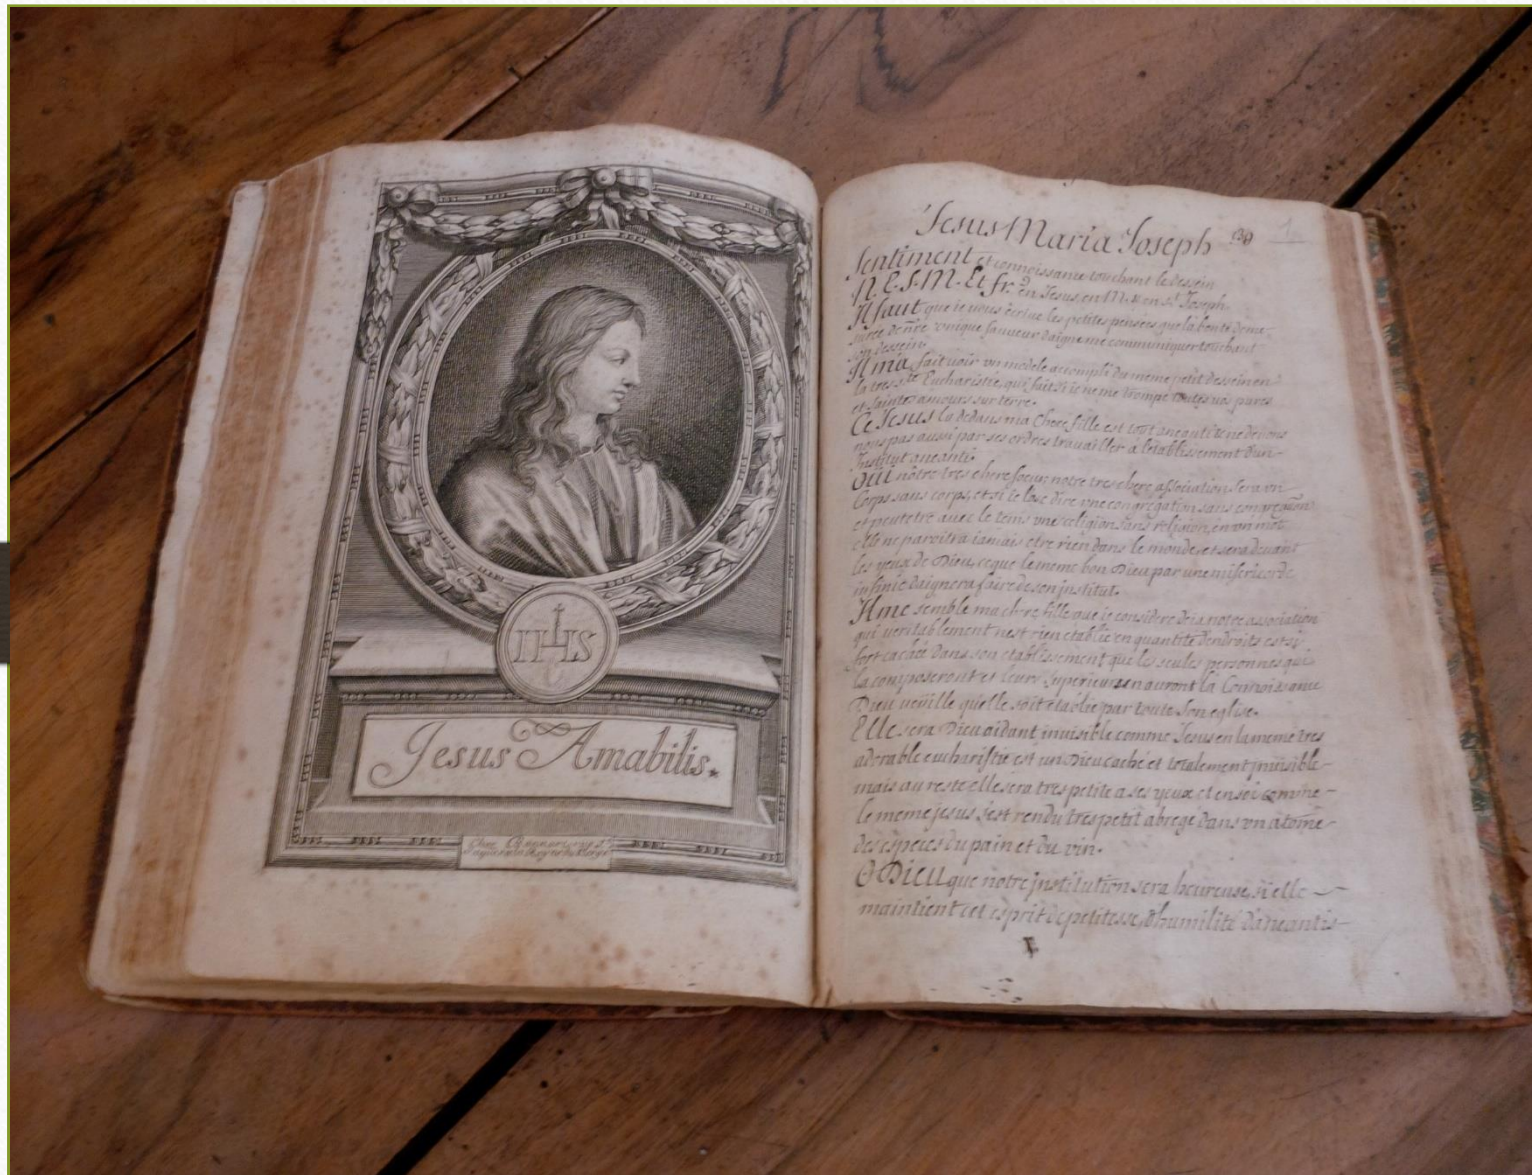 IHS
Jesus Amabilis.
Jesus Maria Joseph
1
Sentiment et connoissance touchant le dessein
N. E. S. M. Et fr. en Jesus, en M. & en St. Joseph.
Il faut que ie vous écrive les petites pensées que la bonté deme-
surée de nre vnique sauveur daigne me communiquer touchant
son dessein.
Il ma fait voir vn modele accompli du meme petit dessein en
la tres Ste Eucharistie, qui fait si ie ne me trompe toutes vos pures
et saintes amours sur terre.
Ce Jesus la dedans ma Chere fille est tout aneanti & ne devons
nous pas aussi par ses ordres travailler a letablissement dun
Institut aneanti.
Oui nôtre tres chere soeur, notre tres chere association sera vn
Corps sans corps, et si ie lose dire vne congregation sans congregation
et peutetre avec le tems vne religion sans religion, en vn mot
elle ne paroitra iamais etre rien dans le monde, et sera devant
les yeux de Dieu, ce que le meme bon Dieu par une misericorde
infinie daignera faire de son institut.
Il me semble ma chere fille que ie considere deia notre association
qui veritablement nest rien etablie en quantité dendroits est si
fort cachée dans son etablissement que les seules personnes qui
la composeront et leurs superieurs en auront la Connoissance
Dieu veuille quelle soit etablie par toute son eglise.
Elle sera Dieu aidant invisible comme Jesus en la meme tres
adorable eucharistie est un Dieu caché et totalement invisible
mais au reste elle sera tres petite a ses yeux et en soi comme
le meme jesus sest rendu tres petit abregé dans vn atome
des especes du pain et du vin.
O Dieu que notre institution sera heureuse, si elle
maintient cet esprit de petitesse, dhumilité daneantis-